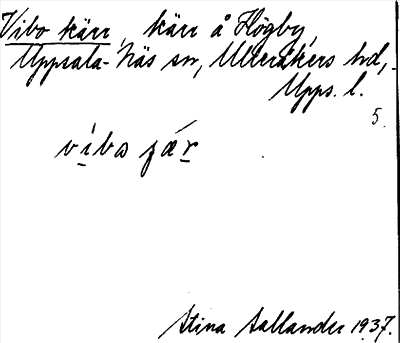 Vibo kärr, kärr å Högby,
Uppsala-Näs sn, Ulleråkers hd,
Upps. l.
5.
vibo
Stina Sallander 1937.